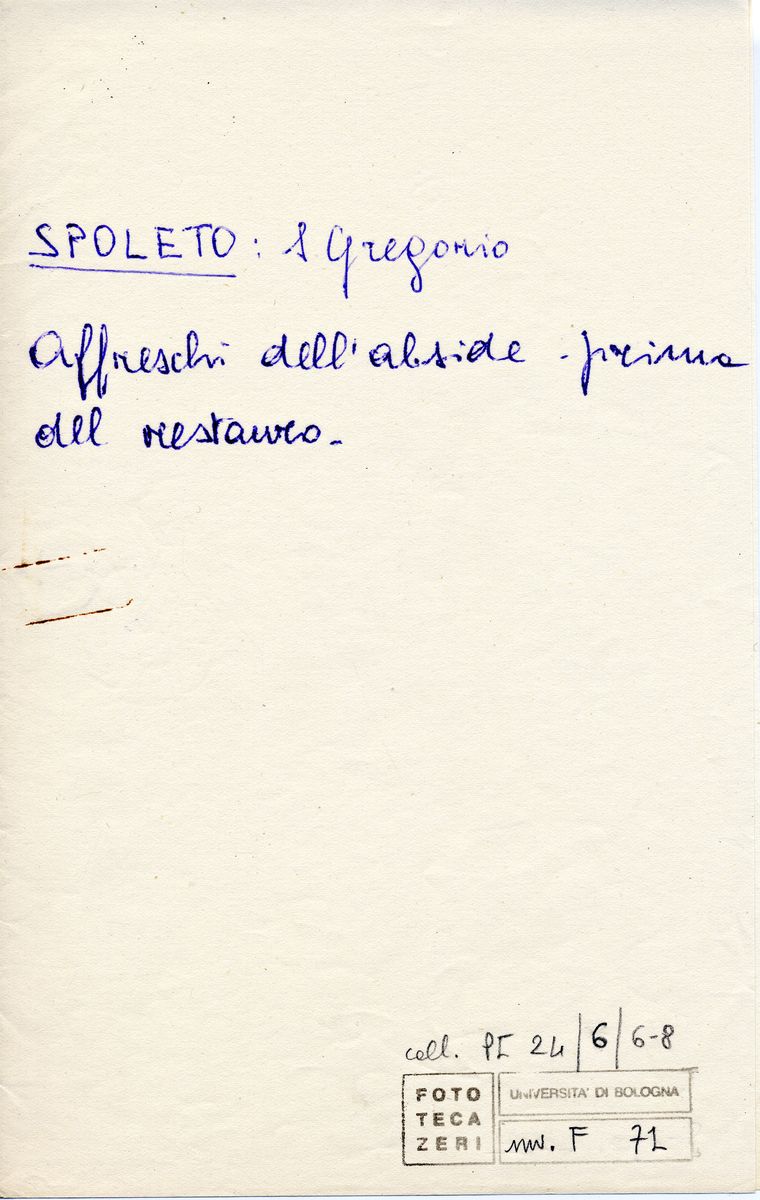 SPOLETO: S Gregorio
Affreschi dell'abside - prima
del restauro -
coll. PI 24/6/6-8
FOTO
TECA
ZERI
UNIVERSITA' DI BOLOGNA
inv. F 71